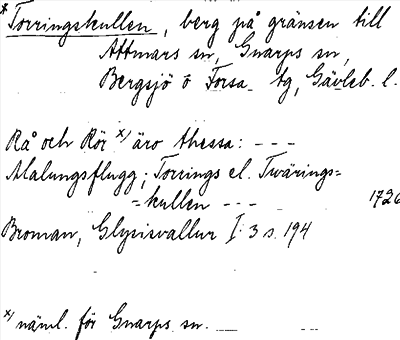 * Torringskullen, berg på gränsen till
Attmars sn, Gnarps sn,
Bergsjö o Forsa tg, Gävleb. l.
Rå och Rör x/ äro thessa: - - -
Alalungsflugg; Torrings el. Twärings=
=kullen - - - 1726
Broman, Glysisvallur I: 3 s. 194
x/ näml. för Gnarps sn.